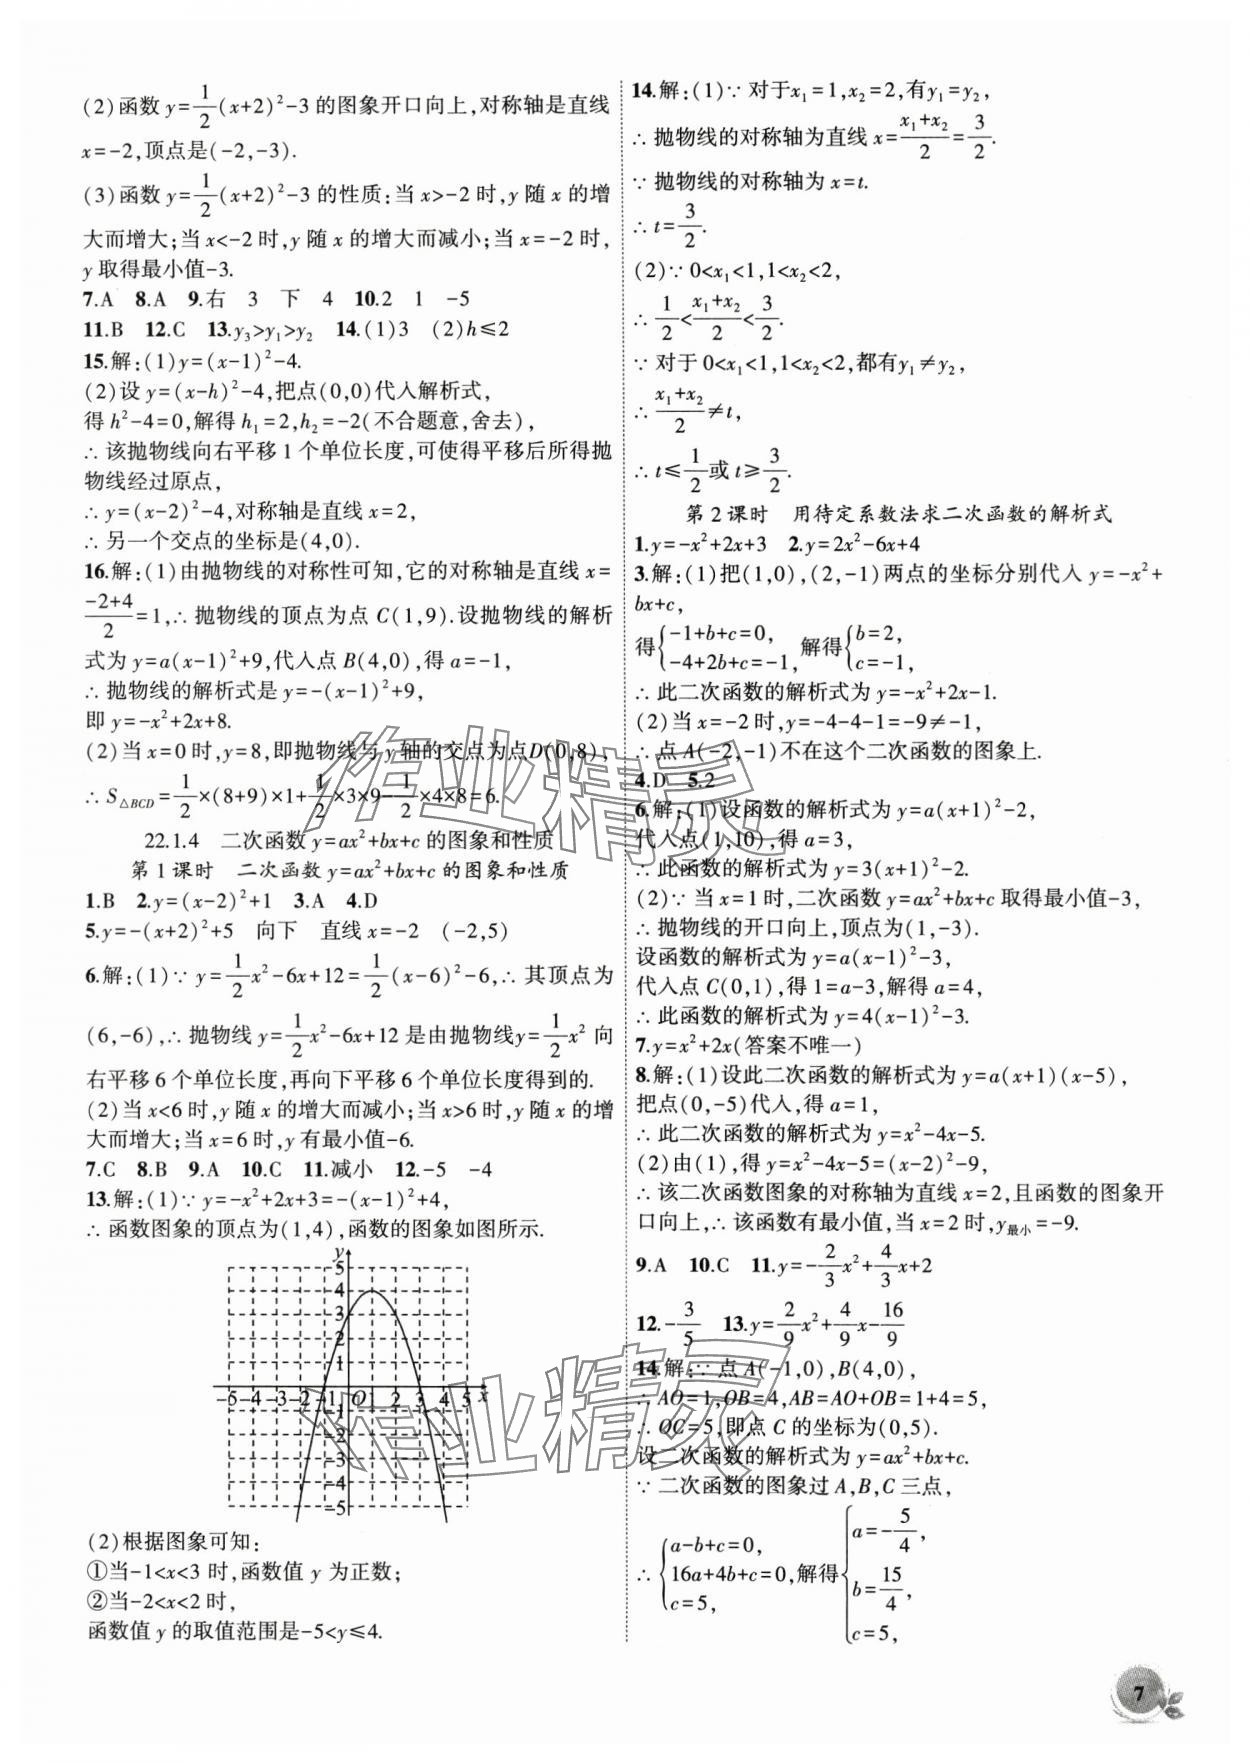 (2)函数 y=1/2(x+2)²-3 的图象开口向上,对称轴是直线
x=-2,顶点是(-2,-3).
(3)函数 y=1/2(x+2)²-3 的性质:当 x>-2 时,y 随 x 的增
大而增大;当 x<-2 时,y 随 x 的增大而减小;当 x=-2 时,
y 取得最小值-3.
7.A 8.A 9.右 3 下 4 10.2 1 -5
11.B 12.C 13.y₃>y₁>y₂ 14.(1)3 (2)h≤2
15.解:(1)y=(x-1)²-4.
(2)设 y=(x-h)²-4,把点(0,0)代入解析式,
得 h²-4=0,解得 h₁=2,h₂=-2(不合题意,舍去),
∴该抛物线向右平移 1 个单位长度,可使得平移后所得抛
物线经过原点,
∴y=(x-2)²-4,对称轴是直线 x=2,
∴另一个交点的坐标是(4,0).
16.解:(1)由抛物线的对称性可知,它的对称轴是直线 x=
(-2+4)/2=1,∴抛物线的顶点为点 C(1,9).设抛物线的解析
式为 y=a(x-1)²+9,代入点 B(4,0),得 a=-1,
∴抛物线的解析式是 y=-(x-1)²+9,
即 y=-x²+2x+8.
(2)当 x=0 时,y=8,即抛物线与 y 轴的交点为点D(0,8),
∴S△BCD=1/2×(8+9)×1+1/2×3×9-1/2×4×8=6.
22.1.4 二次函数 y=ax²+bx+c 的图象和性质
第 1 课时 二次函数 y=ax²+bx+c 的图象和性质
1.B 2.y=(x-2)²+1 3.A 4.D
5.y=-(x+2)²+5 向下 直线 x=-2 (-2,5)
6.解:(1)∵y=1/2x²-6x+12=1/2(x-6)²-6,∴其顶点为
(6,-6),∴抛物线 y=1/2x²-6x+12 是由抛物线y=1/2x² 向
右平移 6 个单位长度,再向下平移 6 个单位长度得到的.
(2)当 x<6 时,y 随 x 的增大而减小;当 x>6 时,y 随 x 的增
大而增大;当 x=6 时,y 有最小值-6.
7.C 8.B 9.A 10.C 11.减小 12.-5 -4
13.解:(1)∵y=-x²+2x+3=-(x-1)²+4,
∴函数图象的顶点为(1,4),函数的图象如图所示.
y
5
4
3
2
1
-5 -4 -3 -2 -1 O 1 2 3 4 5 x
-1
-2
-3
-4
-5
(2)根据图象可知:
①当-1<x<3 时,函数值 y 为正数;
②当-2<x<2 时,
函数值 y 的取值范围是-5<y≤4.
14.解:(1)∵对于x₁=1,x₂=2,有y₁=y₂,
∴抛物线的对称轴为直线 x=(x₁+x₂)/2=3/2.
∵抛物线的对称轴为 x=t.
∴t=3/2.
(2)∵0<x₁<1,1<x₂<2,
∴1/2<(x₁+x₂)/2<3/2.
∵对于 0<x₁<1,1<x₂<2,都有y₁≠y₂,
∴(x₁+x₂)/2≠t,
∴t≤1/2或 t≥3/2.
第 2 课时 用待定系数法求二次函数的解析式
1.y=-x²+2x+3 2.y=2x²-6x+4
3.解:(1)把(1,0),(2,-1)两点的坐标分别代入 y=-x²+
bx+c,
得{-1+b+c=0, -4+2b+c=-1, 解得{b=2, c=-1,
∴此二次函数的解析式为 y=-x²+2x-1.
(2)当 x=-2 时,y=-4-4-1=-9≠-1,
∴点 A(-2,-1)不在这个二次函数的图象上.
4.D 5.2
6.解:(1)设函数的解析式为 y=a(x+1)²-2,
代入点(1,10),得 a=3,
∴此函数的解析式为 y=3(x+1)²-2.
(2)∵当 x=1 时,二次函数 y=ax²+bx+c 取得最小值-3,
∴抛物线的开口向上,顶点为(1,-3).
设函数的解析式为 y=a(x-1)²-3,
代入点 C(0,1),得 1=a-3,解得 a=4,
∴此函数的解析式为 y=4(x-1)²-3.
7.y=x²+2x(答案不唯一)
8.解:(1)设此二次函数的解析式为 y=a(x+1)(x-5),
把点(0,-5)代入,得 a=1,
∴此二次函数的解析式为 y=x²-4x-5.
(2)由(1),得 y=x²-4x-5=(x-2)²-9,
∴该二次函数图象的对称轴为直线 x=2,且函数的图象开
口向上,∴该函数有最小值,当 x=2 时,y最小=-9.
9.A 10.C 11.y=-2/3x²+4/3x+2
12.-3/5 13.y=2/9x²+4/9x-16/9
14.解:∵点 A(-1,0),B(4,0),
∴AO=1,OB=4,AB=AO+OB=1+4=5,
∴OC=5,即点 C 的坐标为(0,5).
设二次函数的解析式为 y=ax²+bx+c.
∵二次函数的图象过 A,B,C 三点,
∴{a-b+c=0, 16a+4b+c=0, c=5, 解得{a=-5/4, b=15/4, c=5,
7
作业精灵
作业精灵